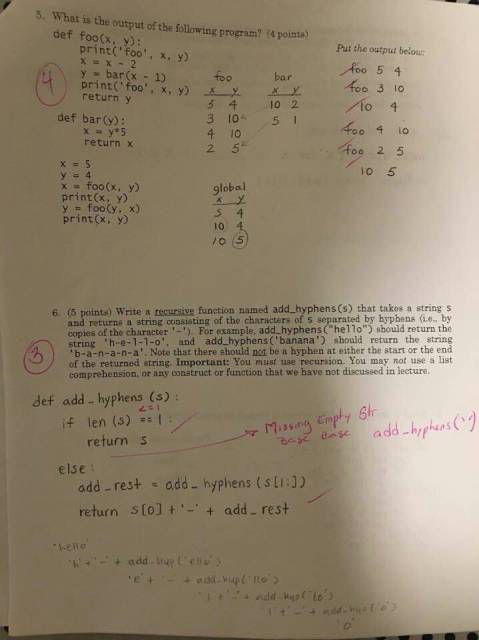 5. What is the output of the following program? (4 points)
def foo(x, y):
print('foo', x, y)
x = x - 2
y = bar(x - 1)
print('foo', x, y)
return y
def bar(y):
x = y*5
return x
x = 5
y = 4
x = foo(x, y)
print(x, y)
y = foo(y, x)
print(x, y)
4
foo
x y
5 4
3 10
4 10
2 5
bar
x y
10 2
5 1
global
x y
5 4
10 4
10 5
Put the output below:
foo 5 4
foo 3 10
10 4
foo 4 10
foo 2 5
10 5
6. (5 points) Write a recursive function named add_hyphens(s) that takes a string s
and returns a string consisting of the characters of s separated by hyphens (i.e., by
copies of the character '-'). For example, add_hyphens("hello") should return the
string 'h-e-l-l-o', and add_hyphens('banana') should return the string
'b-a-n-a-n-a'. Note that there should not be a hyphen at either the start or the end
of the returned string. Important: You must use recursion. You may not use a list
comprehension, or any construct or function that we have not discussed in lecture.
3
def add_hyphens (s):
<=1
if len (s) == 1 :
return s
Missing Empty Str
Base Case add_hyphens('')
else:
add_rest = add_hyphens (s[1:])
return s[0] + '-' + add_rest
'hello'
'h' + '-' + add-hyp('ello')
'e' + '-' + add-hyp('llo')
'l' + '-' + add-hyp('lo')
'l' + '-' + add-hyp('o')
'o'